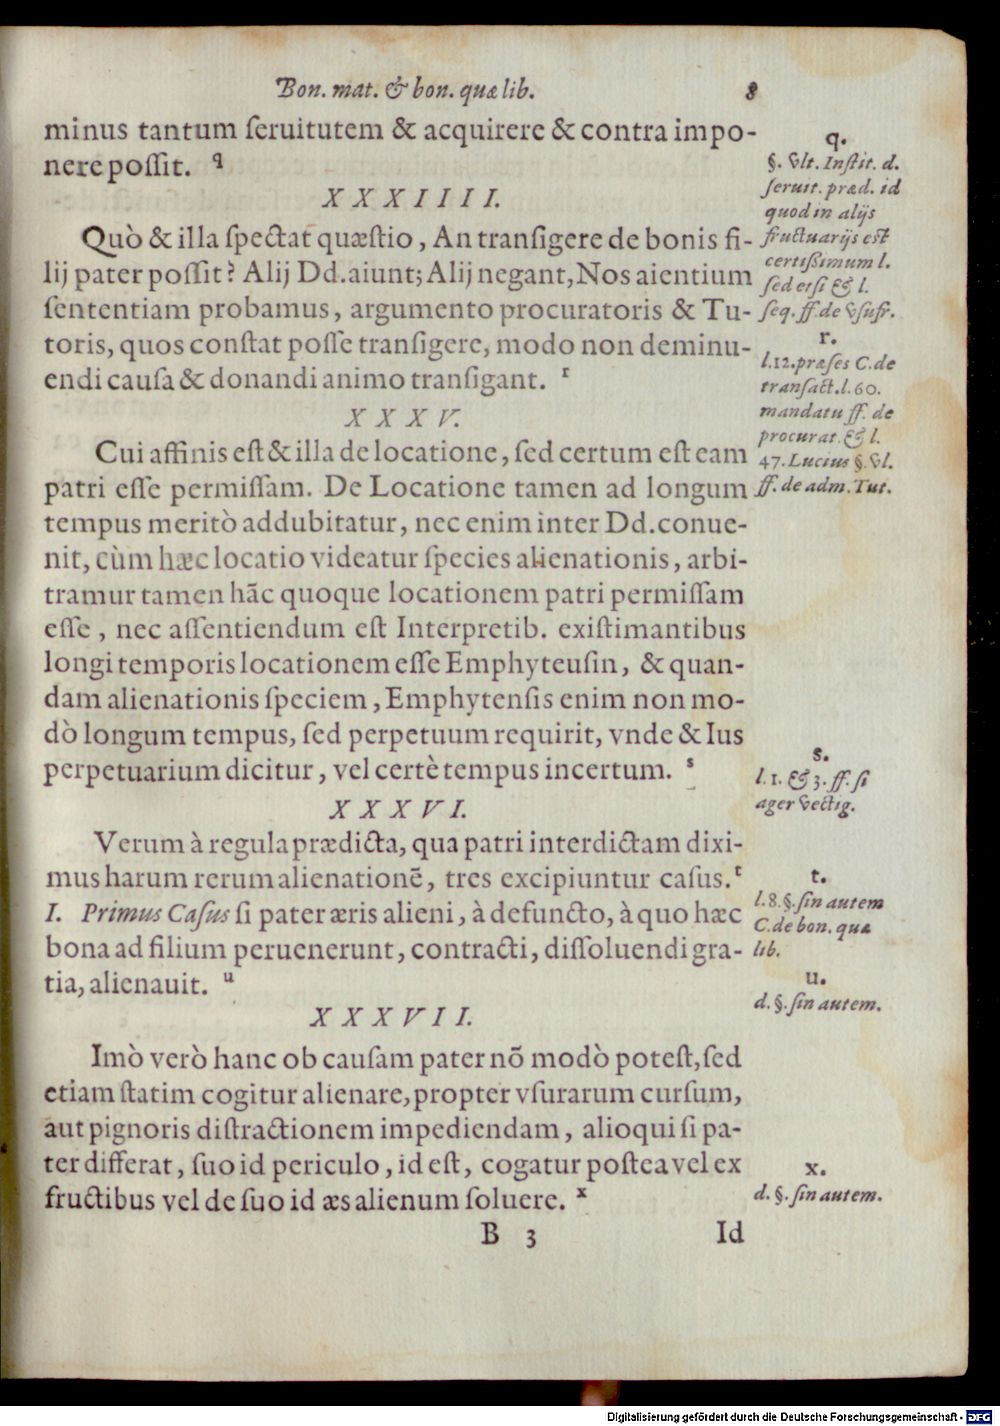 Bon. mat. & bon. quæ lib. 8
minus tantum ſeruitutem & acquirere & contra impo-
nere poſſit. q
XXXIIII.
Quò & illa ſpectat quæſtio, An tranſigere de bonis fi-
lij pater poſſit? Alij Dd. aiunt; Alij negant, Nos aientium
ſententiam probamus, argumento procuratoris & Tu-
toris, quos conſtat poſſe tranſigere, modo non deminu-
endi cauſa & donandi animo tranſigant. r
XXXV.
Cui affinis eſt & illa de locatione, ſed certum eſt eam
patri eſſe permiſſam. De Locatione tamen ad longum
tempus meritò addubitatur, nec enim inter Dd. conue-
nit, cùm hæc locatio videatur ſpecies alienationis, arbi-
tramur tamen hãc quoque locationem patri permiſſam
eſſe, nec aſſentiendum eſt Interpretib. exiſtimantibus
longi temporis locationem eſſe Emphyteuſin, & quan-
dam alienationis ſpeciem, Emphytenſis enim non mo-
dò longum tempus, ſed perpetuum requirit, vnde & Ius
perpetuarium dicitur, vel certè tempus incertum. s
XXXVI.
Verum à regula prædicta, qua patri interdictam dixi-
mus harum rerum alienationẽ, tres excipiuntur caſus. t
I. Primus Caſus ſi pater æris alieni, à defuncto, à quo hæc
bona ad filium peruenerunt, contracti, diſſoluendi gra-
tia, alienauit. u
XXXVII.
Imò verò hanc ob cauſam pater nõ modò poteſt, ſed
etiam ſtatim cogitur alienare, propter vſurarum curſum,
aut pignoris diſtractionem impediendam, alioqui ſi pa-
ter differat, ſuo id periculo, id eſt, cogatur poſtea vel ex
fructibus vel de ſuo id æs alienum ſoluere. x
B 3 Id
q.
§. vlt. Inſtit. d.
ſeruit. præd. id
quod in alijs
fructuarijs eſt
certiſſimum l.
ſed et ſi & l.
ſeq. ff. de vſufr.
r.
l. 12. præſes C. de
tranſact. l. 60.
mandatu ff. de
procurat. & l.
47. Lucius §. vl.
ff. de adm. Tut.
s.
l. 1. & 3. ff. ſi
ager vectig.
t.
l. 8. §. ſin autem
C. de bon. quæ
lib.
u.
d. §. ſin autem.
x.
d. §. ſin autem.
Digitalisierung gefördert durch die Deutsche Forschungsgemeinschaft - DFG